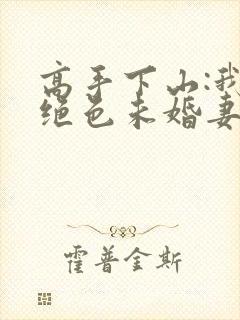 高手下山:我
绝色未婚妻
霍普金斯